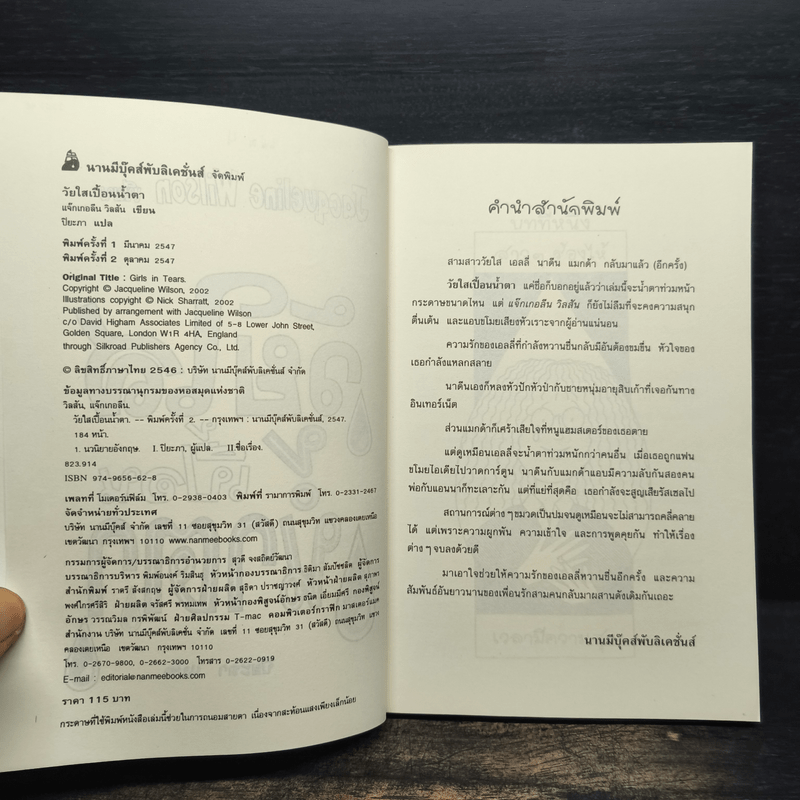 นานมีบุ๊คส์พับลิเคชั่นส์ จัดพิมพ์
วัยใสเปื้อนน้ำตา
แจ๊กเกอลีน วิลสัน เขียน
ปิยะภา แปล
พิมพ์ครั้งที่ 1 มีนาคม 2547
พิมพ์ครั้งที่ 2 ตุลาคม 2547
Original Title : Girls in Tears.
Copyright © Jacqueline Wilson, 2002
Illustrations copyight © Nick Sharratt, 2002
Published by arrangement with Jacqueline Wilson
c/o David Higham Associates Limited of 5-8 Lower John Street,
Golden Square, London W1R 4HA, England
through Silkroad Publishers Agency Co., Ltd.
© ลิขสิทธิ์ภาษาไทย 2546 : บริษัท นานมีบุ๊คส์พับลิเคชั่นส์ จำกัด
ข้อมูลทางบรรณานุกรมของหอสมุดแห่งชาติ
วิลสัน, แจ๊กเกอลีน.
วัยใสเปื้อนน้ำตา. -- พิมพ์ครั้งที่ 2. -- กรุงเทพฯ : นานมีบุ๊คส์พับลิเคชั่นส์, 2547.
184 หน้า.
1. นวนิยายอังกฤษ. I. ปิยะภา, ผู้แปล. II.ชื่อเรื่อง.
823.914
ISBN 974-9656-62-8
เพลทที่ โมเดอร์นฟิล์ม โทร. 0-2938-0403 พิมพ์ที่ รามาการพิมพ์ โทร. 0-2331-2467
จัดจำหน่ายทั่วประเทศ
บริษัท นานมีบุ๊คส์ จำกัด เลขที่ 11 ซอยสุขุมวิท 31 (สวัสดี) ถนนสุขุมวิท แขวงคลองเตยเหนือ
เขตวัฒนา กรุงเทพฯ 10110 www.nanmeebooks.com
กรรมการผู้จัดการ/บรรณาธิการอำนวยการ สุวดี จงสถิตย์วัฒนา
บรรณาธิการบริหาร พิมพ์อนงค์ ริมสินธุ หัวหน้ากองบรรณาธิการ ธิติมา สัมปัชชลิต ผู้จัดการ
สำนักพิมพ์ ราตรี สังสฤกษ ผู้จัดการฝ่ายผลิต สุธิดา ปราชญาวงศ์ หัวหน้าฝ่ายผลิต สุภาพ
พงศ์ไกรศรีสิริ ฝ่ายผลิต จรัสศรี พรหมเทพ หัวหน้ากองพิสูจน์อักษร ธนิต เอี่ยมมีศรี กองพิสูจน์
อักษร วรรณวิมล กรพิพัฒน์ ฝ่ายศิลปกรรม T-mac คอมพิวเตอร์กราฟิก มาสเตอร์แมค
สำนักงาน บริษัท นานมีบุ๊คส์พับลิเคชั่น จำกัด เลขที่ 11 ซอยสุขุมวิท 31 (สวัสดี) ถนนสุขุมวิท แขวง
คลองเตยเหนือ เขตวัฒนา กรุงเทพฯ 10110
โทร. 0-2670-9800, 0-2662-3000 โทรสาร 0-2622-0919
E-mail : editorial@nanmeebooks.com
ราคา 115 บาท
กระดาษที่ใช้พิมพ์หนังสือเล่มนี้ช่วยในการถนอมสายตา เนื่องจากสะท้อนแสงเพียงเล็กน้อย
คำนำสำนักพิมพ์
สามสาววัยใส เอลลี่ นาดีน แมกด้า กลับมาแล้ว (อีกครั้ง)
วัยใสเปื้อนน้ำตา แค่ชื่อก็บอกอยู่แล้วว่าเล่มนี้จะน้ำตาท่วมหน้า
กระดาษขนาดไหน แต่ แจ๊กเกอลีน วิลสัน ก็ยังไม่ลืมที่จะคงความสนุก
ตื่นเต้น และแอบขโมยเสียงหัวเราะจากผู้อ่านแน่นอน
ความรักของเอลลี่ที่กำลังหวานชื่นกลับมีอันต้องขมขื่น หัวใจของ
เธอกำลังแหลกสลาย
นาดีนเองก็หลงหัวปักหัวปำกับชายหนุ่มอายุสิบเก้าที่เจอกันทาง
อินเทอร์เน็ต
ส่วนแมกด้าก็เศร้าเสียใจที่หนูแฮมสเตอร์ของเธอตาย
แต่ดูเหมือนเอลลี่จะน้ำตาท่วมหนักกว่าคนอื่น เมื่อเธอถูกแฟน
ขโมยไอเดียไปวาดการ์ตูน นาดีนกับแมกด้าแอบมีความลับกันสองคน
พ่อกับแอนนาก็ทะเลาะกัน แต่ที่แย่ที่สุดคือ เธอกำลังจะสูญเสียรัสเซลไป
สถานการณ์ต่าง ๆ ขมวดเป็นปมจนดูเหมือนจะไม่สามารถคลี่คลาย
ได้ แต่เพราะความผูกพัน ความเข้าใจ และการพูดคุยกัน ทำให้เรื่อง
ต่าง ๆ จบลงด้วยดี
มาเอาใจช่วยให้ความรักของเอลลี่หวานชื่นอีกครั้ง และความ
สัมพันธ์อันยาวนานของเพื่อนรักสามคนกลับมาผสานดังเดิมกันเถอะ
นานมีบุ๊คส์พับลิเคชั่นส์